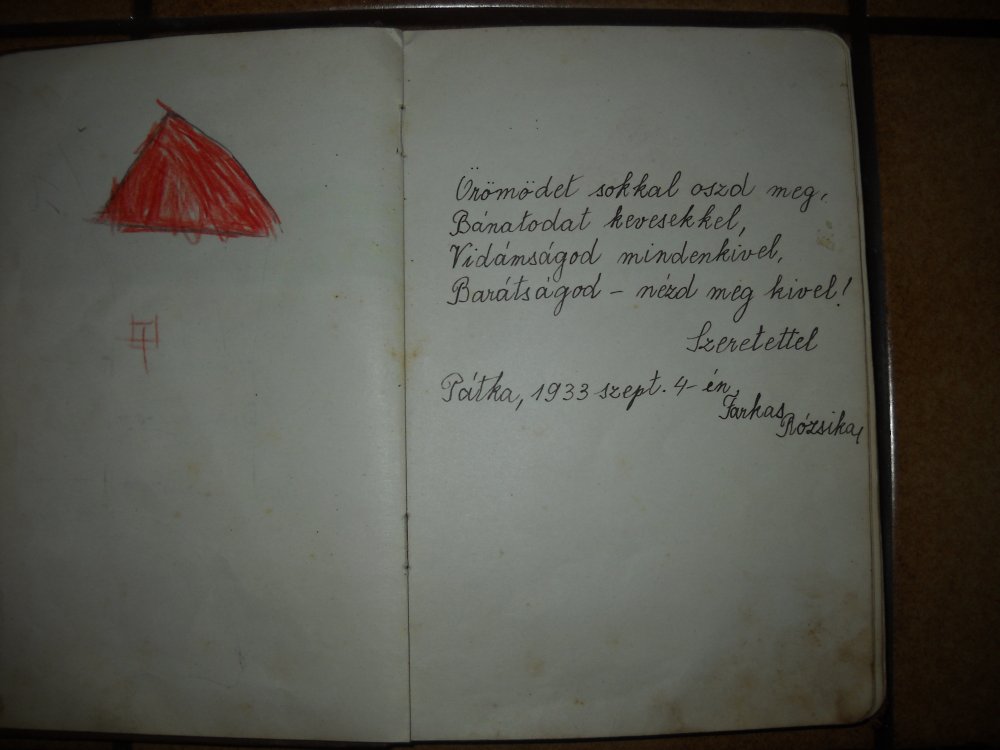 Örömödet sokkal oszd meg,
Bánatodat kevesekkel,
Vidámságod mindenkivel,
Barátságod – nézd meg kivel!
Szeretettel
Pátka, 1933 szept. 4-én
Farkas
Rózsika